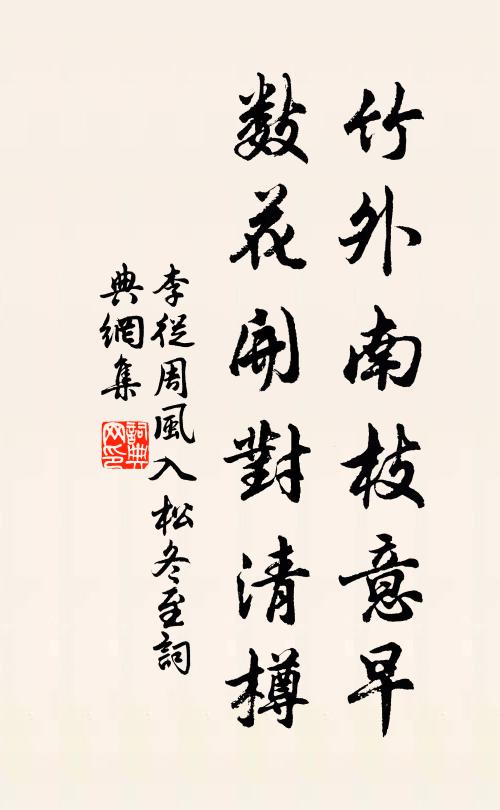 竹外南枝意早
數花開對清樽
李從周風入松冬至詞
典網集
詞典
网印